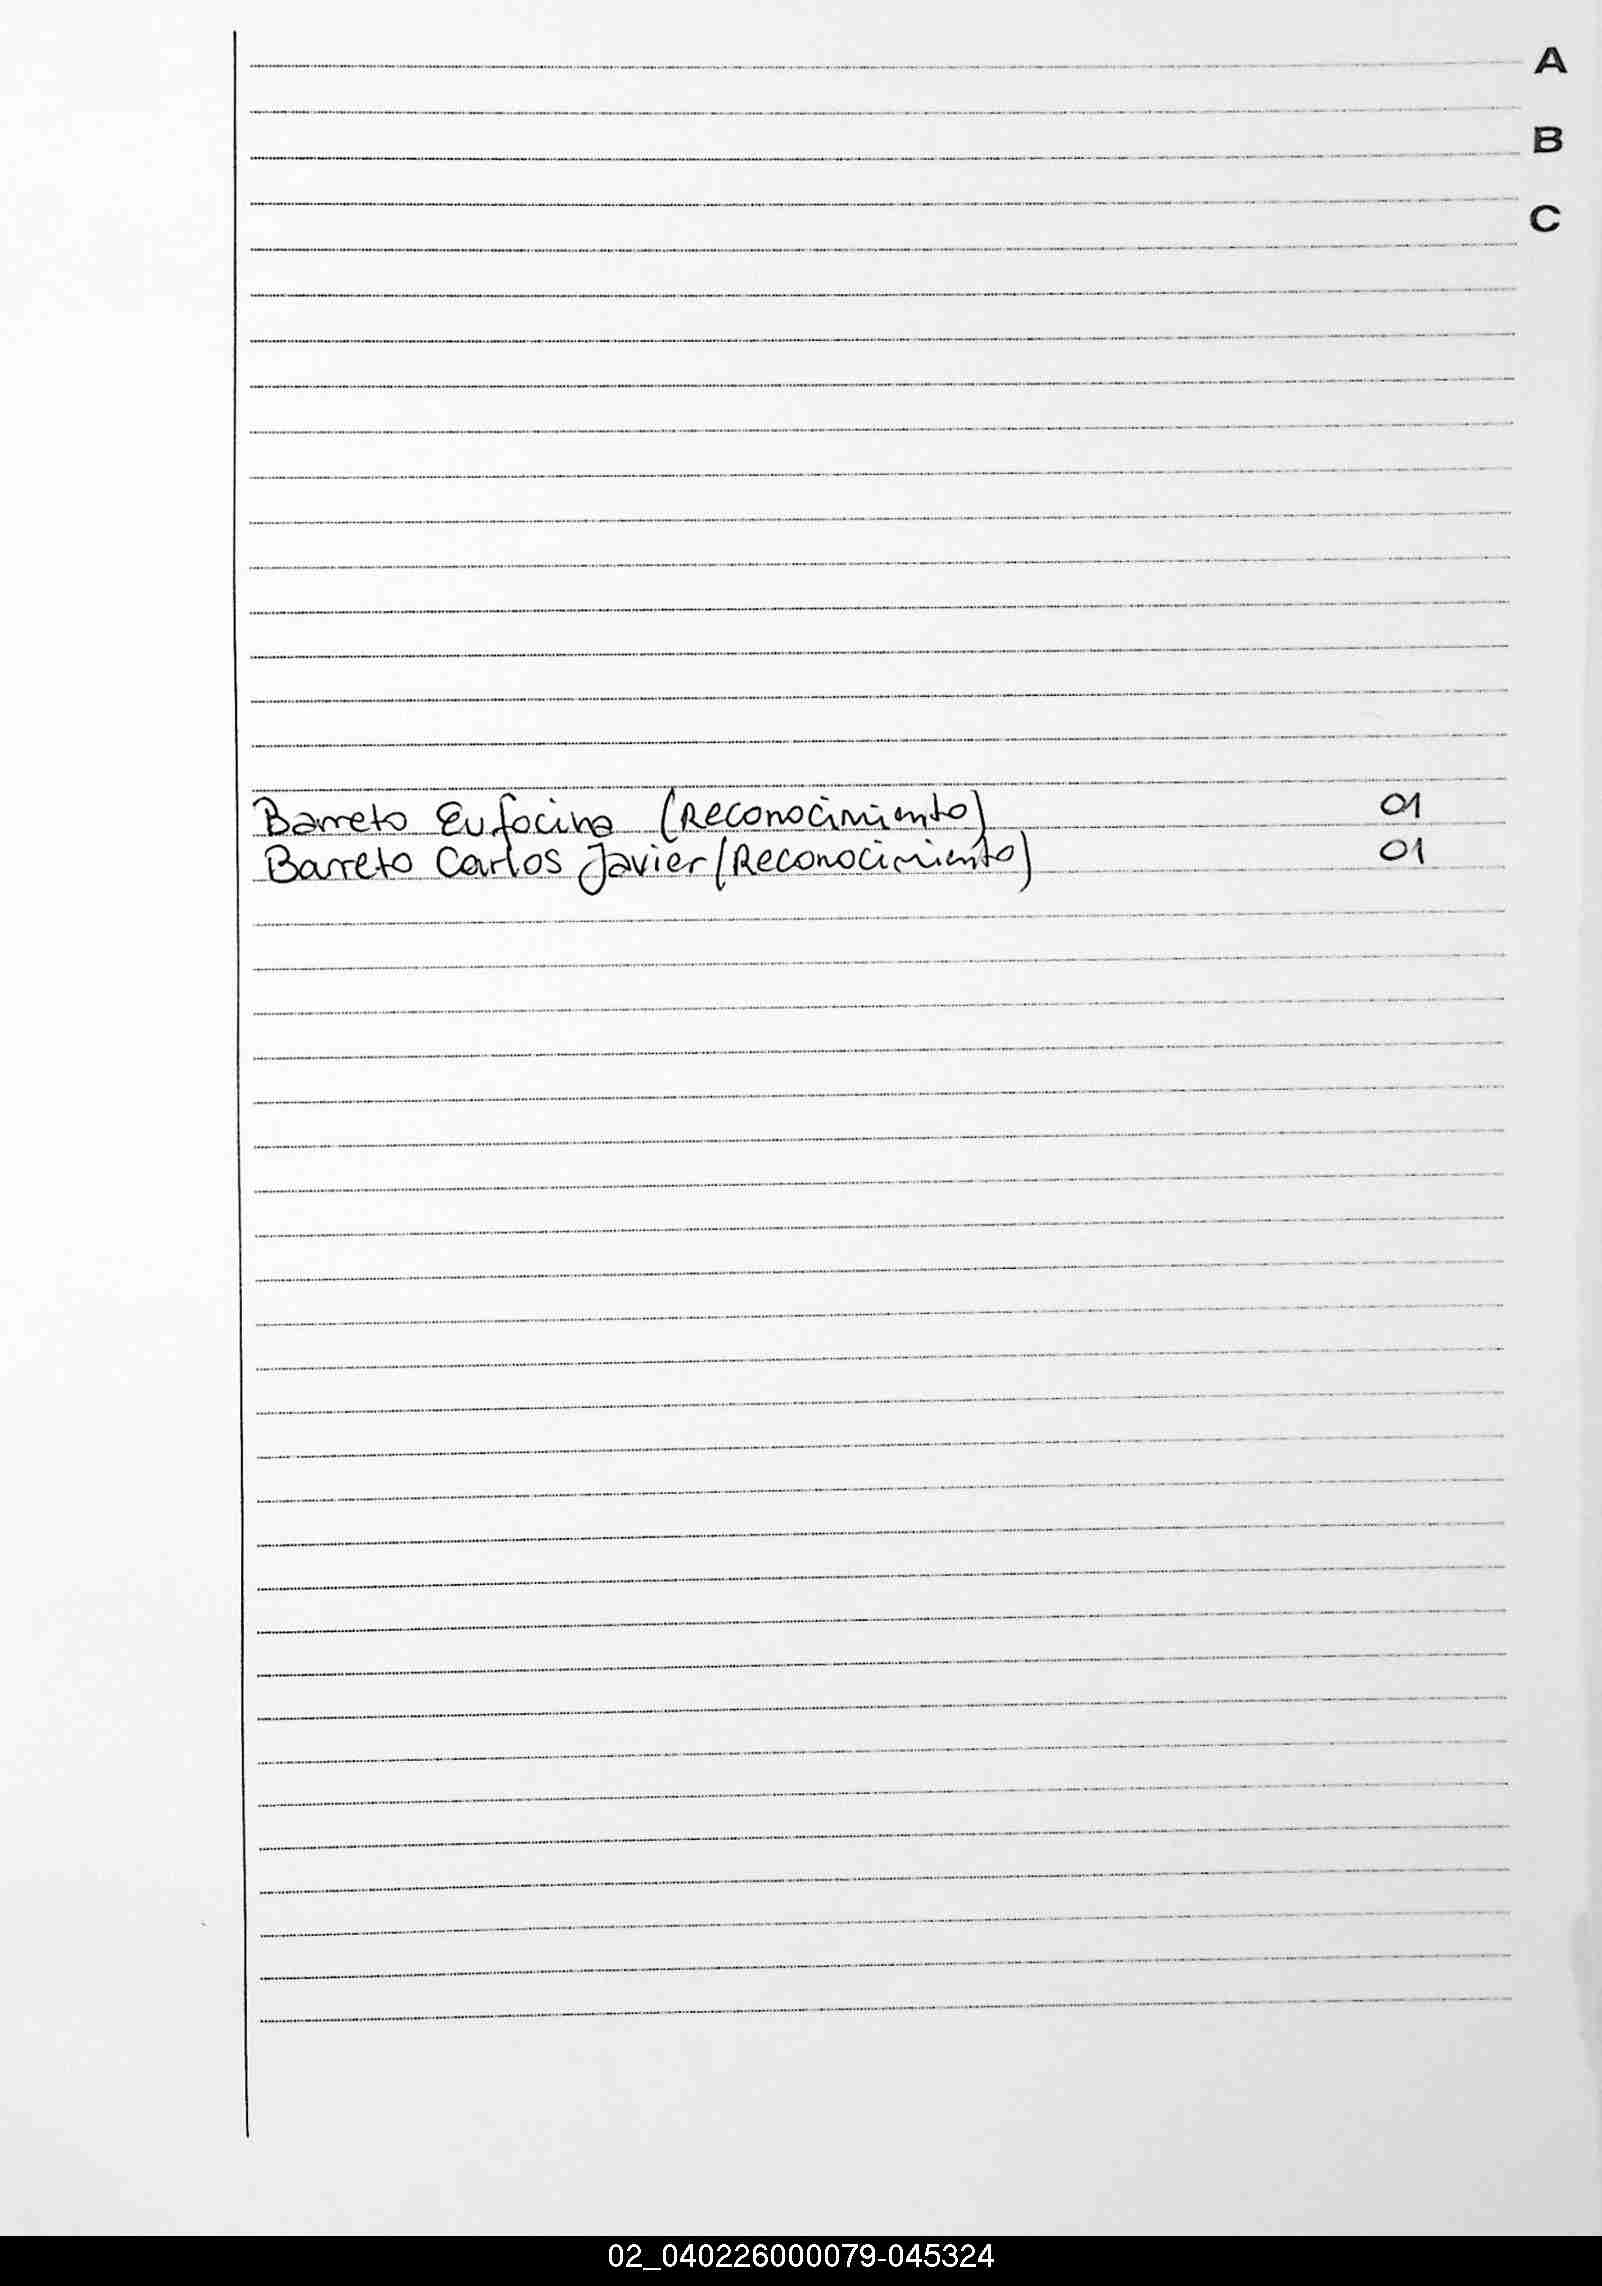 A
B
C
Barreto Eufocina (Reconocimiento) 01
Barreto Carlos Javier (Reconocimiento) 01
02_040226000079-045324